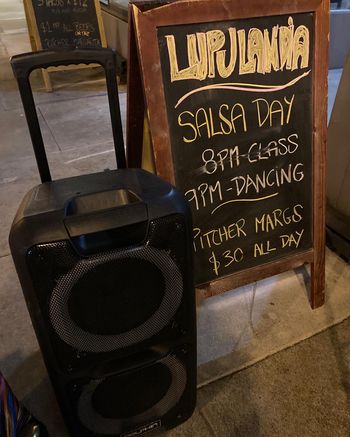 LUPULANDIA
SALSA DAY
8PM-CLASS
9PM-DANCING
PITCHER MARGS
$30 ALL DAY